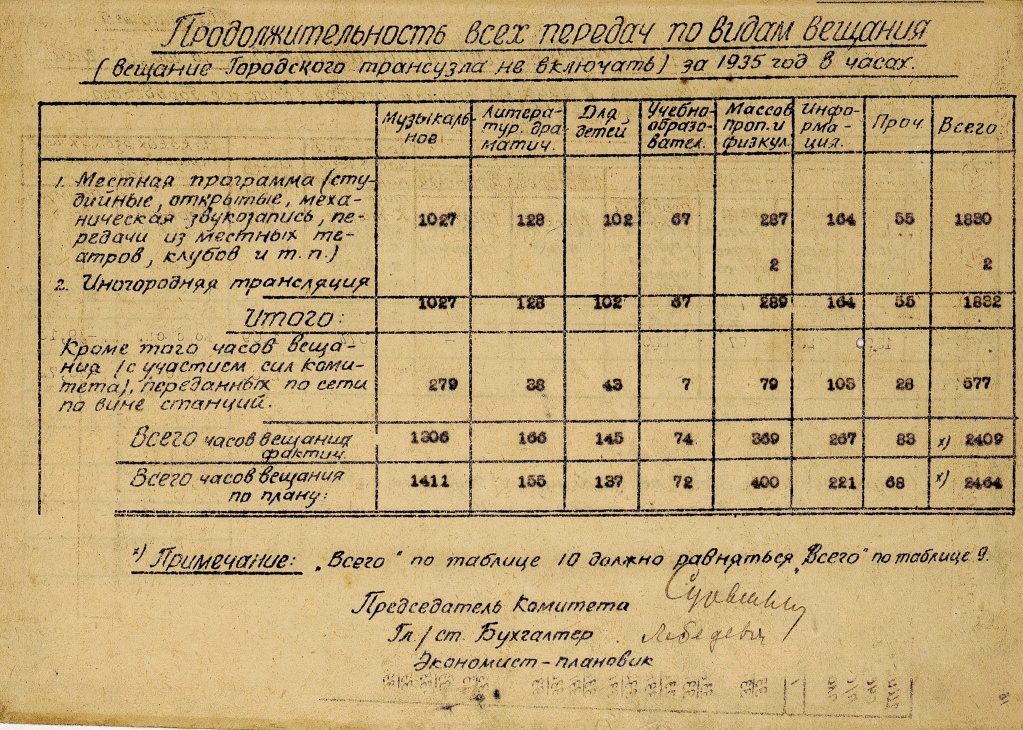 Продолжительность всех передач по видам вещания
(вещание Городского трансузла не включать) за 1935 год в часах.
Музыкаль-
ное
Литера-
тур. дра-
матич.
Для
детей
Учебно-
образо-
вател.
Массов
проп. и
физкул.
Инфо-
рма-
ция.
Проч.
Всего
1. Местная программа (сту-
дийные, открытые, меха-
ническая звукозапись, пе-
редачи из местных те-
атров, клубов и т.п.)
1027 128 102 67 287 164 55 1830
2. Иногородняя трансляция
2 2
Итого:
1027 128 102 67 289 164 55 1832
Кроме того часов веща-
ния (с участием сил коми-
тета), переданных по сети
по вине станций.
279 38 43 7 79 103 28 577
Всего часов вещания
фактич.
1306 166 145 74 369 267 83 х) 2409
Всего часов вещания
по плану:
1411 155 137 72 400 221 68 х) 2464
х) Примечание: „Всего" по таблице 10 должно равняться „Всего" по таблице 9.
Председатель Комитета
Гл./ст. Бухгалтер Лебедева
Экономист-плановик